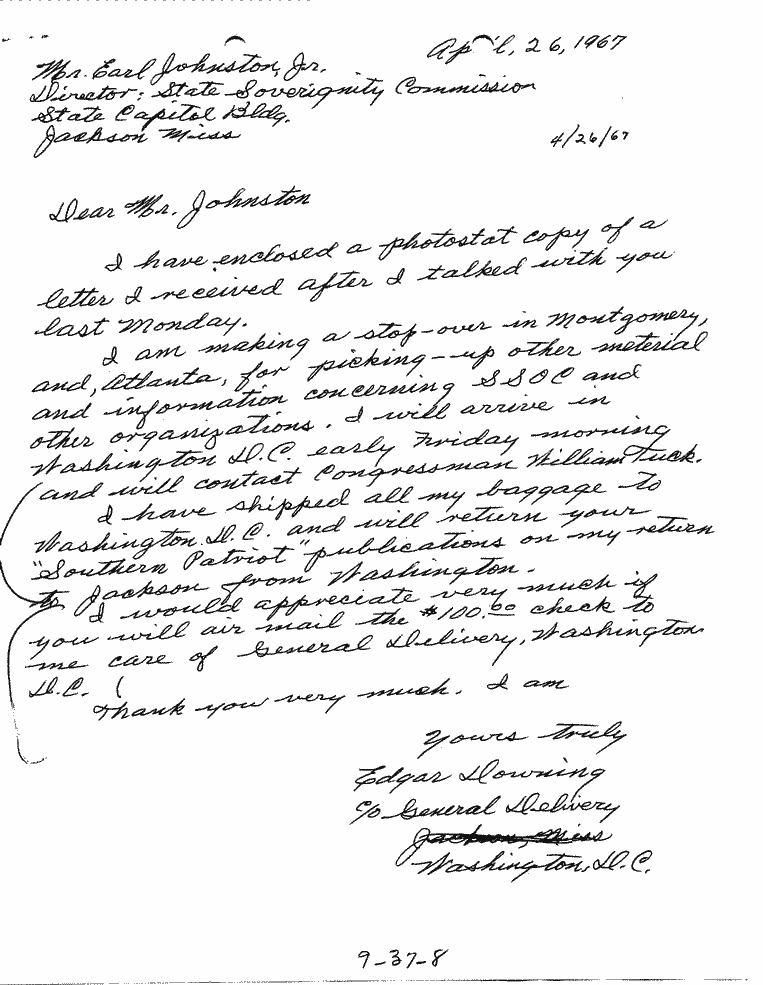 April, 26, 1967
Mr. Earl Johnston, Jr.
Director: State Soverignity Commission
State Capitol Bldg.
Jackson Miss
4/26/67
Dear Mr. Johnston
I have enclosed a photostat copy of a
letter I received after I talked with you
last Monday.
I am making a stop-over in Montgomery,
and, Atlanta, for picking-up other meterial
and information concerning SSOC and
other organizations. I will arrive in
Washington D.C. early Friday morning
and will contact Congressman William Tuck.
I have shipped all my baggage to
Washington D.C. and will return your
"Southern Patriot" publications on my return
to Jackson from Washington.
I would appreciate very much if
you will air mail the $100.00 check to
me care of General Delivery, Washington
D.C. (
Thank you very much. I am
Yours truly
Edgar Downing
c/o General Delivery
Jackson, Miss
Washington, D.C.
9-37-8